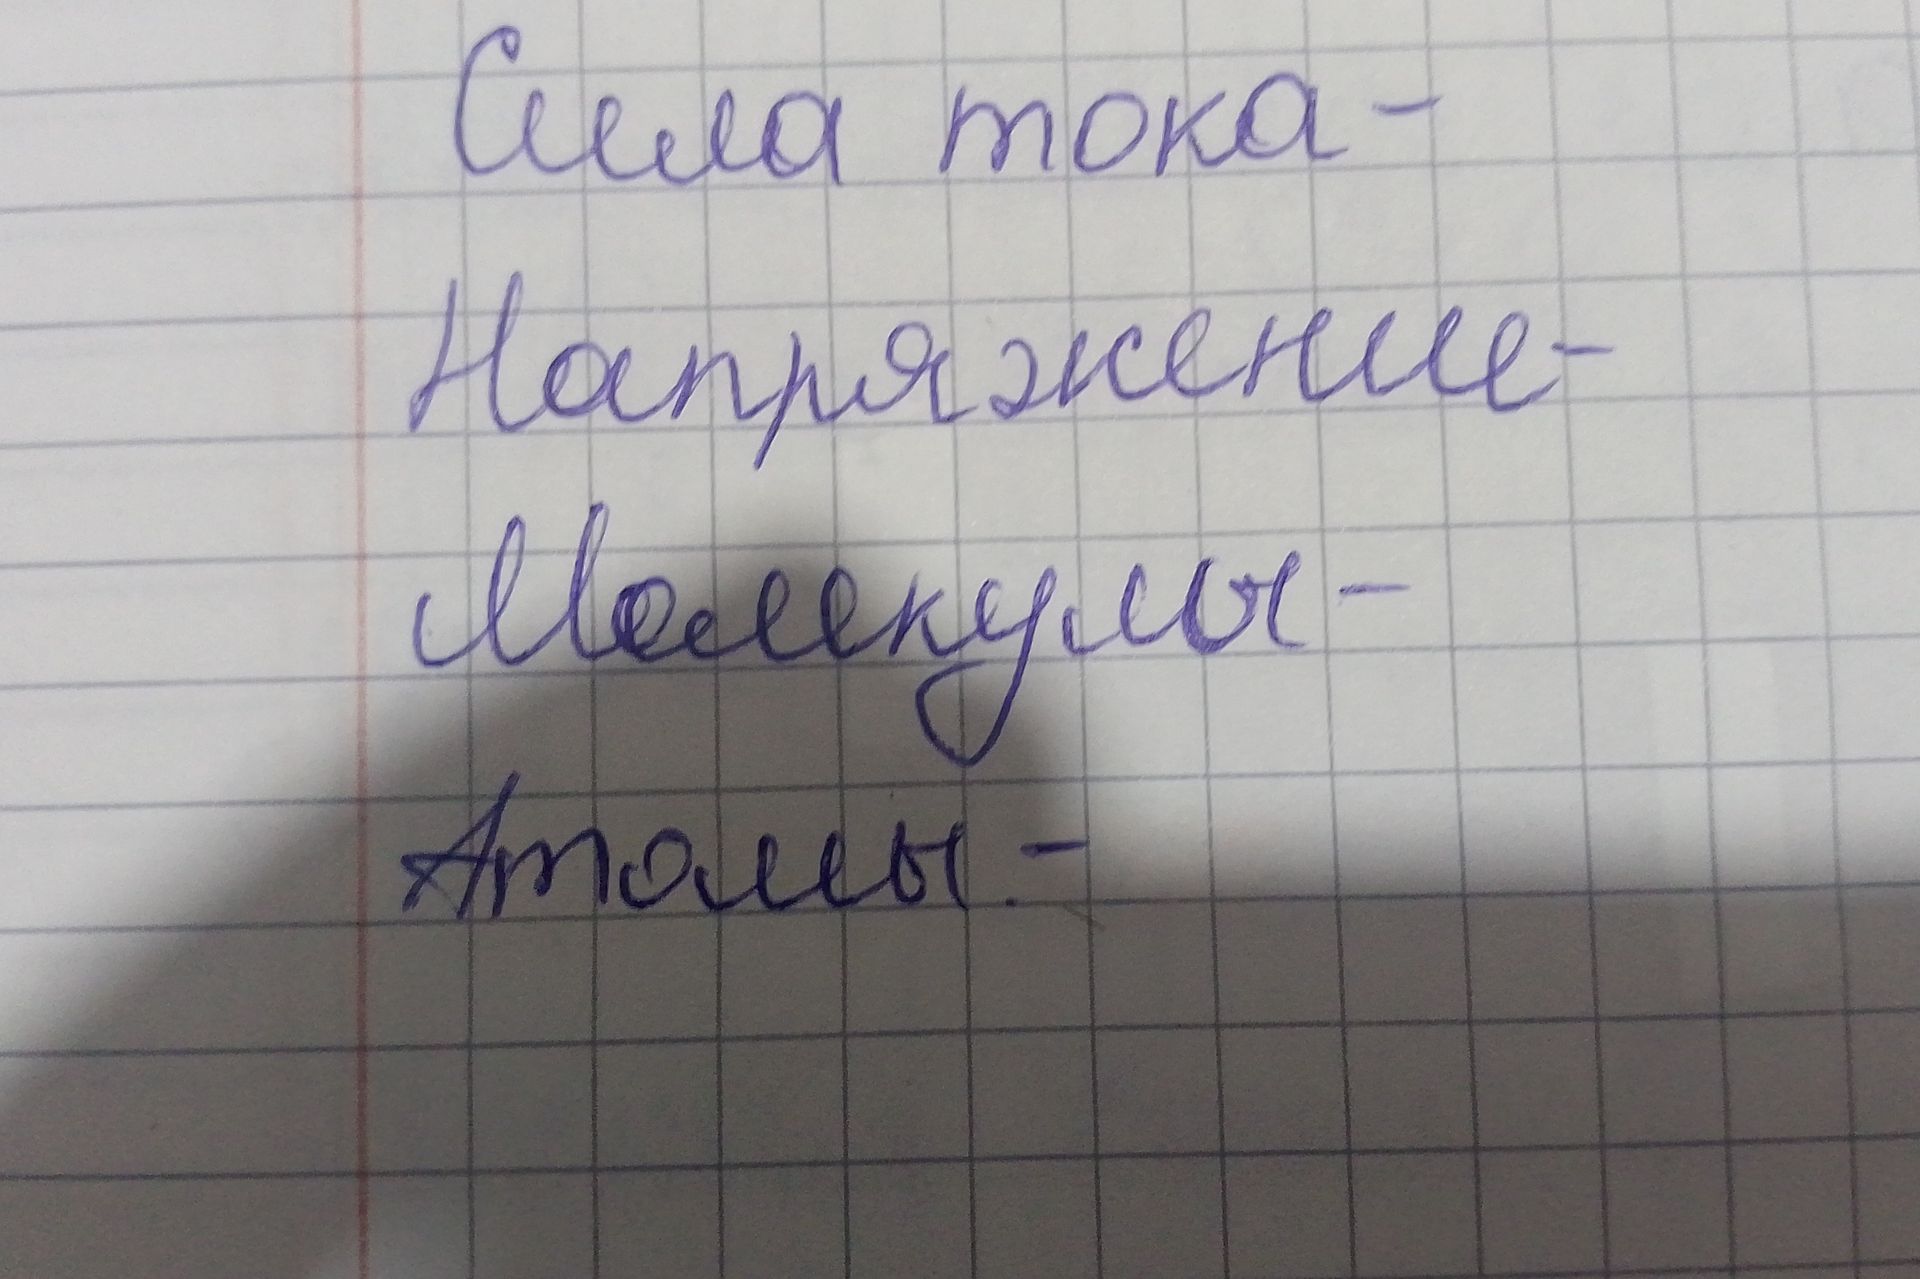 Сила тока -
Напряжение -
Молекулы -
Атомы -